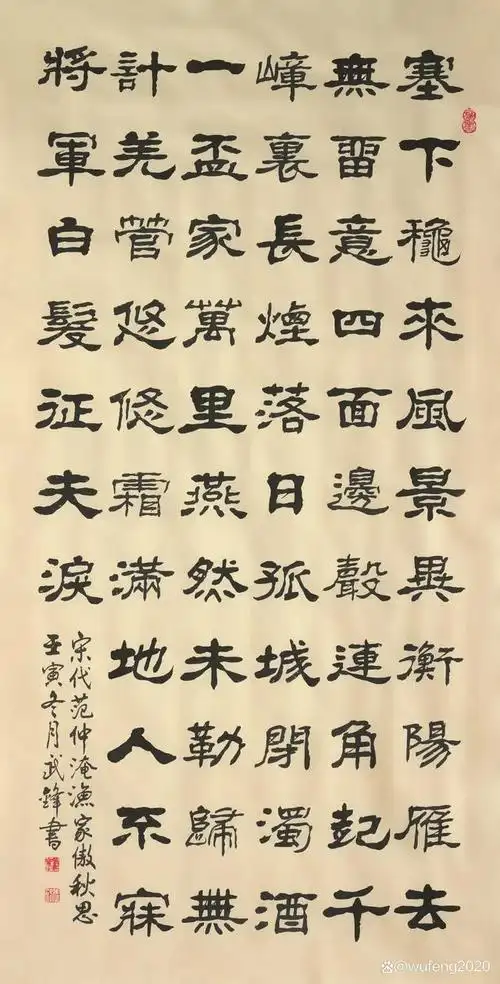 塞下龝來風景異衡陽雁去
無留意四面邊聲連角起千
嶂裏長煙落日孤城閉濁酒
一盃家萬里燕然未勒歸無
計羌管悠悠霜滿地人不寐
將軍白髮征夫淚
宋代范仲淹漁家傲秋思
壬寅冬月武鋒書
@wufeng2020